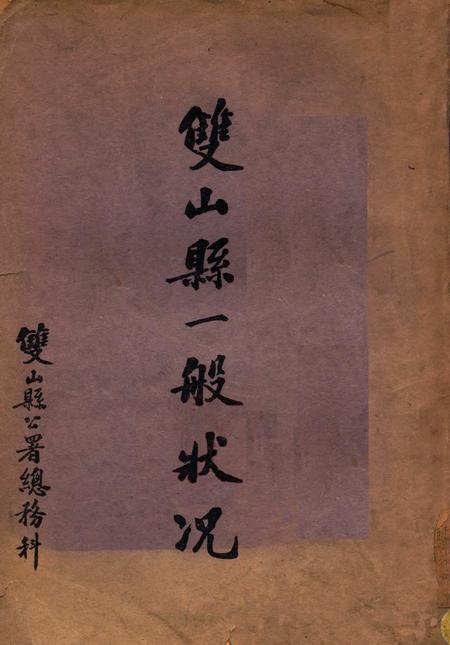 雙山縣一般狀况
雙山縣公署總務科